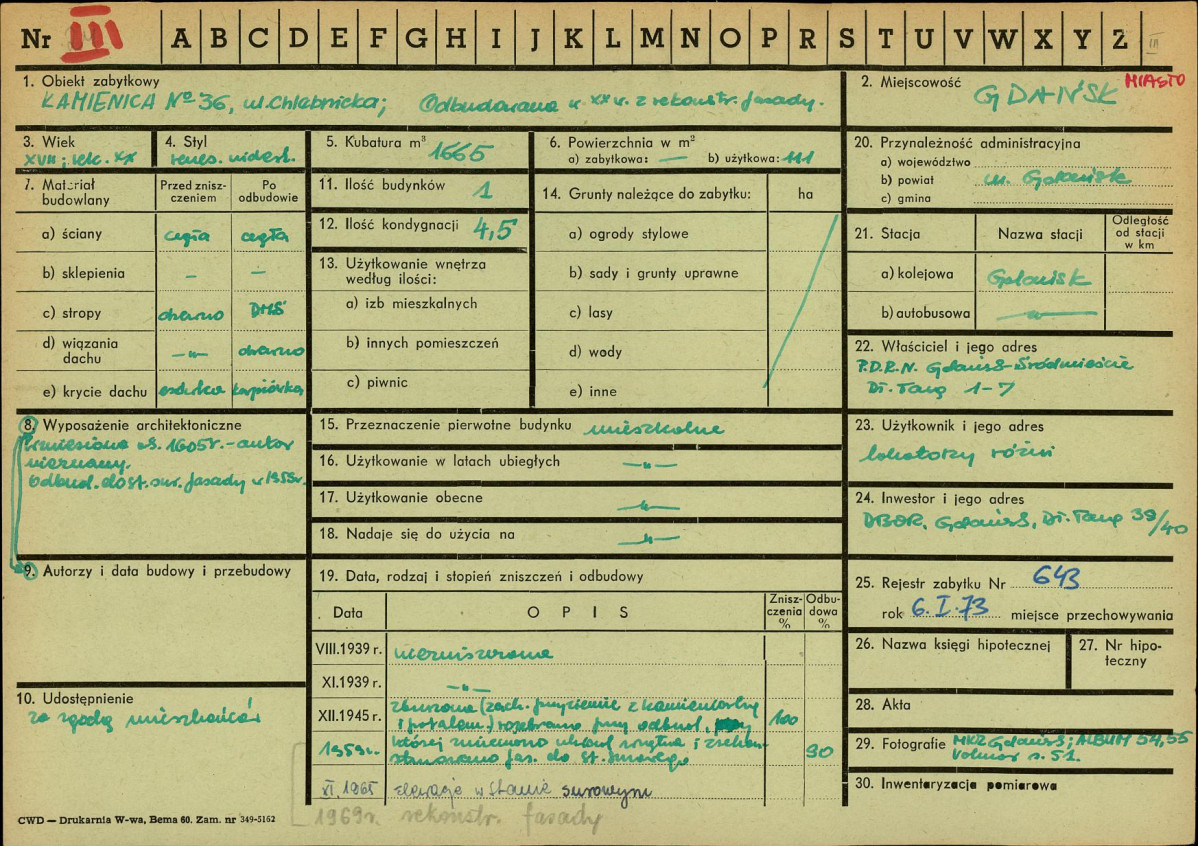 Nr III A B C D E F G H I J K L M N O P R S T U V W X Y Z III
1. Obiekt zabytkowy
KAMIENICA № 36, ul. Chlebnicka; Odbudowana w XX w. z rekonstr. fasady.
2. Miejscowość
GDAŃSK MIASTO
3. Wiek
XVII; rek. XX
4. Styl
renes. niderl.
5. Kubatura m³ 1665
6. Powierzchnia w m²
a) zabytkowa: — b) użytkowa: 111
7. Materiał budowlany
Przed zniszczeniem
Po odbudowie
a) ściany cegła cegła
b) sklepienia – –
c) stropy drewno DMS
d) wiązania dachu –„– drewno
e) krycie dachu esówka karpiówka
8. Wyposażenie architektoniczne
Wzniesiona ok. 1605 r. - autor
nieznany.
Odbud. do st. sur. fasady w 1959 r.
9. Autorzy i data budowy i przebudowy
10. Udostępnienie
za zgodą mieszkańców
11. Ilość budynków 1
12. Ilość kondygnacji 4,5
13. Użytkowanie wnętrza
według ilości:
a) izb mieszkalnych
b) innych pomieszczeń
c) piwnic
14. Grunty należące do zabytku: ha
a) ogrody stylowe
b) sady i grunty uprawne
c) lasy
d) wody
e) inne
15. Przeznaczenie pierwotne budynku mieszkalne
16. Użytkowanie w latach ubiegłych –„–
17. Użytkowanie obecne –„–
18. Nadaje się do użycia na –„–
19. Data, rodzaj i stopień zniszczeń i odbudowy
Data OPIS Zniszczenia % Odbudowa %
VIII.1939 r. niezniszczona
XI.1939 r. –„–
XII.1945 r. zburzona (zach. przyziemie z kamieniarką
i portalem) rozebrano przy odbud., 100
1959 r. której zmieniono układ wnętrza i zrekon-
struowano fas. do st. surowego 90
XI.1965 elewacje w stanie surowym
1969 r. rekonstr. fasady
20. Przynależność administracyjna
a) województwo
b) powiat m. Gdańsk
c) gmina
21. Stacja Nazwa stacji Odległość od stacji w km
a) kolejowa Gdańsk
b) autobusowa –„–
22. Właściciel i jego adres
P.D.R.N. Gdańsk-Śródmieście
Dł. Targ 1-7
23. Użytkownik i jego adres
lokatorzy różni
24. Inwestor i jego adres
DBOR, Gdańsk, Dł. Targ 39/40
25. Rejestr zabytku Nr 643
rok 6.I.73 miejsce przechowywania
26. Nazwa księgi hipotecznej
27. Nr hipoteczny
28. Akta
29. Fotografie MKZ Gdańsk; ALBUM 54, 55
Volmar s. 51.
30. Inwentaryzacja pomiarowa
CWD — Drukarnia W-wa, Bema 60. Zam. nr 349-5162